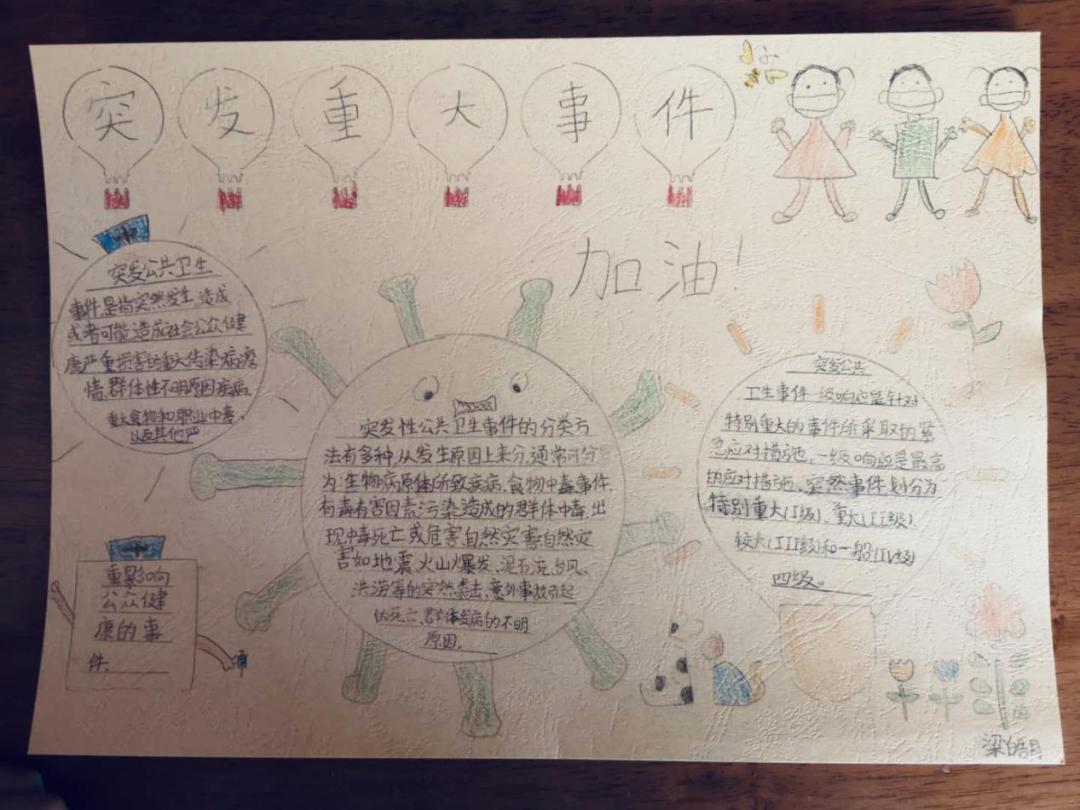 突发重大事件
加油!
突发公共卫生
事件,是指突然发生,造成
或者可能造成社会公众健
康严重损害的重大传染病疫
情,群体性不明原因疾病,
重大食物和职业中毒,
以及其他严
重影响
公众健
康的事
件.
突发性公共卫生事件的分类方
法有多种,从发生原因上来分,通常可分
为:生物病原体所致疾病,食物中毒事件
有毒有害因素污染造成的群体中毒,出
现中毒死亡或危害,自然灾害:自然灾
害如地震、火山爆发、泥石流、台风、
洪涝等的突然袭击,意外事故引起
的死亡,群体发病的不明
原因.
突发公共
卫生事件一级响应是针对
特别重大的事件所采取的紧
急应对措施,一级响应是最高
的应对措施。突然事件划分为
特别重大(I级)、重大(II级)
较大(III级)和一般(IV级)
四级。
梁皓月